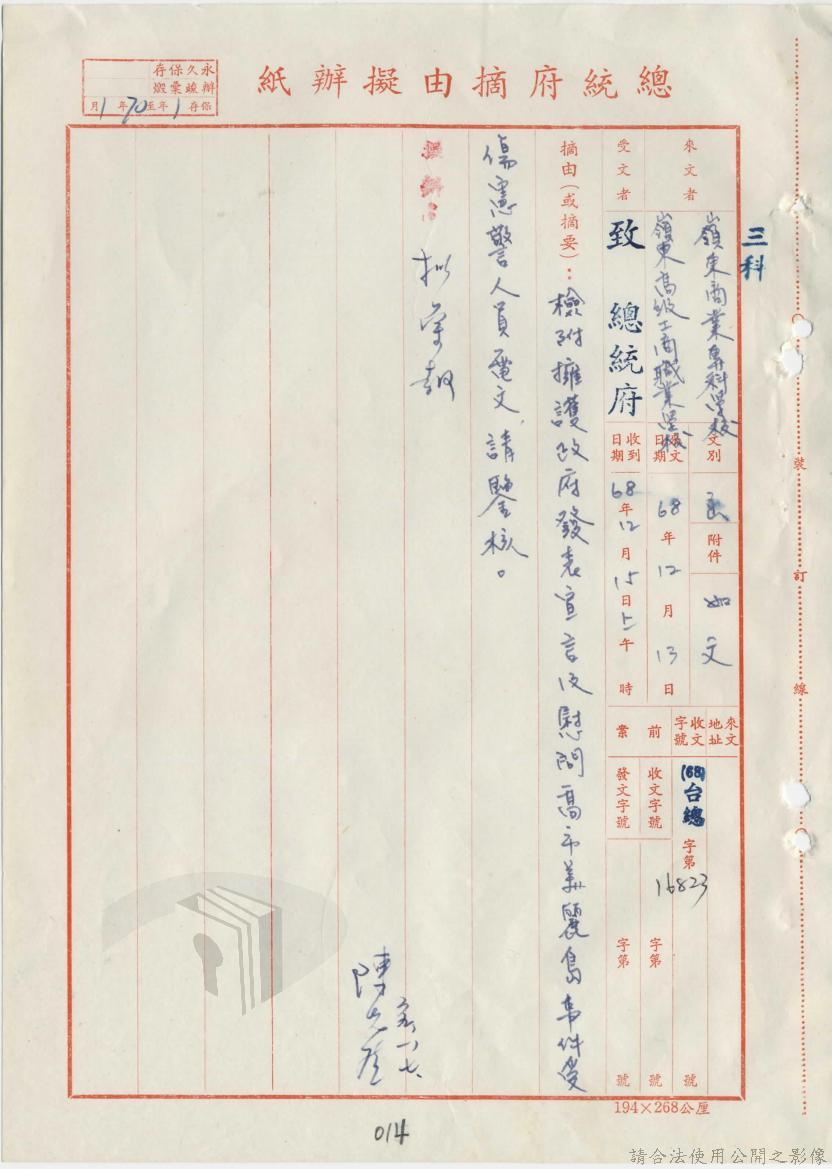 總統府摘由擬辦紙
永久保存
辦竣彙燬
保存1年至70年1月
三科
來文者
嶺東商業專科學校
嶺東高級工商職業學校
受文者
致 總統府
文別
函
附件
如文
發文日期
68年12月13日
收到日期
68年12月15日上午 時
來文地址
收文字號
(68)台總字第16823號
前案
收文字號
字第 號
發文字號
字第 號
摘由(或摘要):檢附擁護政府發表宣言及慰問高市美麗島事件受
傷憲警人員電文,請鑒核。
擬辦:
裝
訂
線
194×268公厘
014
請合法使用公開之影像